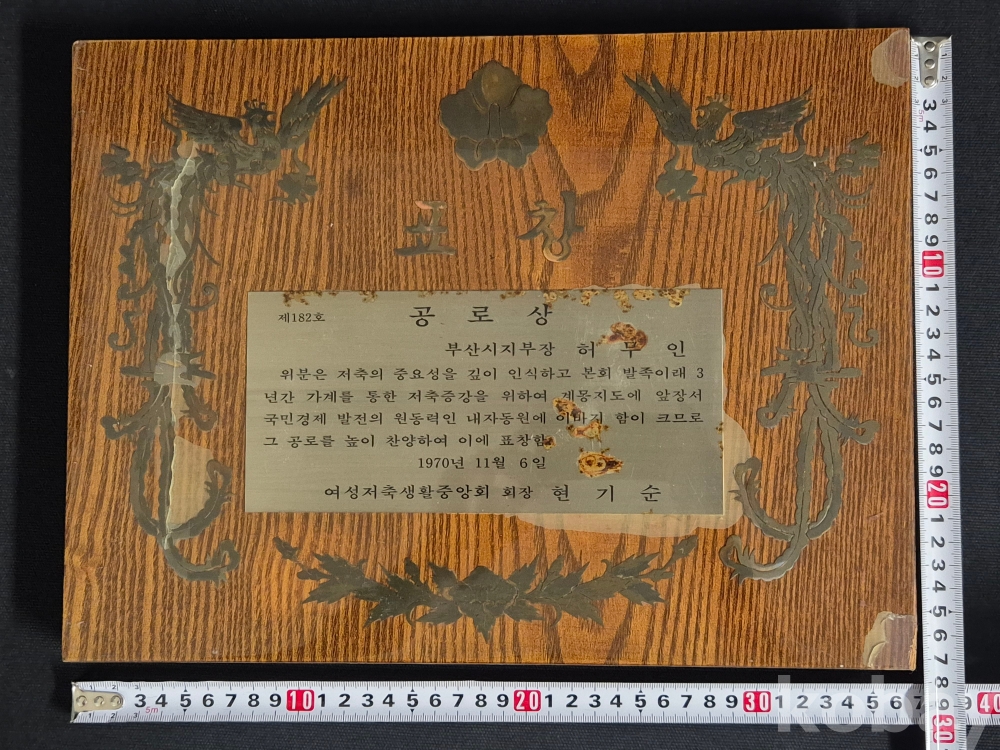 표 창
제182호 공 로 상
부산시지부장 허 무 인
위분은 저축의 중요성을 깊이 인식하고 본회 발족이래 3
년간 가계를 통한 저축증강을 위하여 계몽지도에 앞장서
국민경제 발전의 원동력인 내자동원에 이바지 함이 크므로
그 공로를 높이 찬양하여 이에 표창함
1970년 11월 6일
여성저축생활중앙회 회장 현 기 순
1 2 3 4 5 6 7 8 9 10 1 2 3 4 5 6 7 8 9 20 1 2 3 4 5 6 7 8 9 30
5m
1 2 3 4 5 6 7 8 9 10 1 2 3 4 5 6 7 8 9 20 1 2 3 4 5 6 7 8 9 30 1 2 3 4 5 6 7 8 9 40
5m
kobay